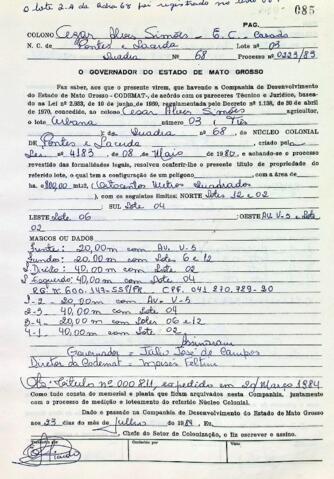 O lote 2-A da Quadra 68 foi registrado no livro
085
PAG.
COLONO Cezar Alves Simões - E.C. Casado
N. C. de Pontes e Lacerda Lote nº 03
Quadra nº 68 Processo nº 0223/83
O GOVERNADOR DO ESTADO DE MATO GROSSO
Faz saber, aos que o presente virem, que havendo a Companhia de Desenvolvimento
do Estado de Mato Grosso - CODEMAT-, de acôrdo com os pareceres Técnico e Jurídico, basea-
do na Lei nº 2.933, de 10 de junho de 1969, regulamentada pelo Decreto nº 1.138, de 30 de abril
de 1970, concedido, ao colono Cezar Alves Simões agricultor,
o lote Urbano número 03 (Três
) da Quadra nº 68, do NÚCLEO COLONIAL
de Pontes e Lacerda, criado pela
Lei 4183 de 08 de Maio de 1980, e achando-se o processo
revestido das formalidades legais, resolveu conferir-lhe o presente título de propriedade do
referido lote, o qual tem a configuração de um polígono com a área de
ha. 800,00 mts2 (Oitocentos Metros Quadrados
), com os seguintes limites: NORTE Lotes 12 e 02
SUL Lote 04
LESTE Lote 06 OESTE AV. V-5 e Lote
02
MARCOS OU DADOS
Frente: 20,00m com Av. V-5
Fundos: 20,00m com Lotes 6 e 12
L Direito: 40,00m com Lote 02
L Esquerdo: 40,00m com Lote 04
RG. nº 600.147-SSP/PR CPF. 041 270.789-20
1-2 - 20,00m com AV. V-5
2-3 - 40,00m com Lote 04
3-4 - 20,00m com Lotes 06 e 12
4-1 - 40,00m com Lote 02
Assinaram
Governador = Júlio José de Campos
Diretor da Codemat - Moisés Feltrin
Ob. Título nº 000.811, expedido em 20 Março 1984
Como tudo consta do memorial e planta que foram arquivados nesta Companhia, juntamente
com o processo de medição e loteamento do referido Núcleo Colonial.
Dado e passado na Companhia de Desenvolvimento do Estado de Mato Grosso
aos 23 dias do mês de Julho de 1984. Eu,
Chefe do Setor de Colonização, o fiz escrever e assino.
Escriturado Por
Conferido por
Visto